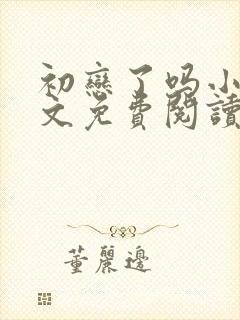 初戀了吗小
文免費閱讀
董麗邊